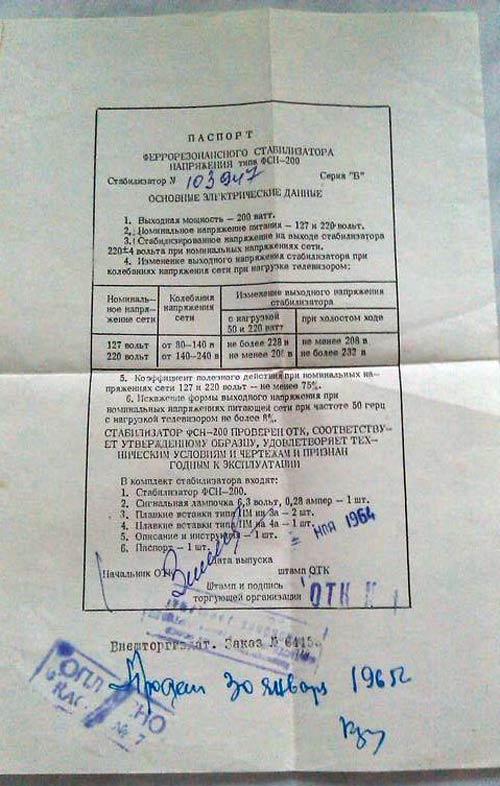 ПАСПОРТ
ФЕРРОРЕЗОНАНСНОГО СТАБИЛИЗАТОРА
НАПРЯЖЕНИЯ типа ФСН-200
Стабилизатор № 103947 Серия "В"
ОСНОВНЫЕ ЭЛЕКТРИЧЕСКИЕ ДАННЫЕ
1. Выходная мощность — 200 ватт.
2. Номинальное напряжение питания — 127 и 220 вольт.
3. Стабилизированное напряжение на выходе стабилизатора
220±4 вольта при номинальных напряжениях сети.
4. Изменение выходного напряжения стабилизатора при
колебаниях напряжения сети при нагрузке телевизором:
Номиналь- Колебания Изменение выходного напряжения
ное напря- напряжения стабилизатора
жение сети сети с нагрузкой при холостом ходе
50 и 220 ватт
127 вольт от 80-140 в не более 228 в не менее 208 в
220 вольт от 140-240 в не менее 208 в не более 232 в
5. Коэффициент полезного действия при номинальных на-
пряжениях сети 127 и 220 вольт — не менее 75%.
6. Искажение формы выходного напряжения при
номинальных напряжениях питающей сети при частоте 50 герц
с нагрузкой телевизором не более 8%.
СТАБИЛИЗАТОР ФСН-200 ПРОВЕРЕН ОТК, СООТВЕТСТВУ-
ЕТ УТВЕРЖДЕННОМУ ОБРАЗЦУ, УДОВЛЕТВОРЯЕТ ТЕХ-
НИЧЕСКИМ УСЛОВИЯМ И ЧЕРТЕЖАМ И ПРИЗНАН
ГОДНЫМ К ЭКСПЛУАТАЦИИ
В комплект стабилизатора входят:
1. Стабилизатор ФСН-200.
2. Сигнальная лампочка 6,3 вольт, 0,28 ампер — 1 шт.
3. Плавкие вставки типа ПМ на 3а — 2 шт.
4. Плавкие вставки типа ПМ на 4а — 1 шт.
5. Описание и инструкция — 1 шт.
6. Паспорт — 1 шт.
1964
Дата выпуска
Начальник ОТК штамп ОТК
Штамп и подпись
торгующей организации
ОТК
Внешторгиздат. Заказ №
Продан 30 января 1965г
№ 7